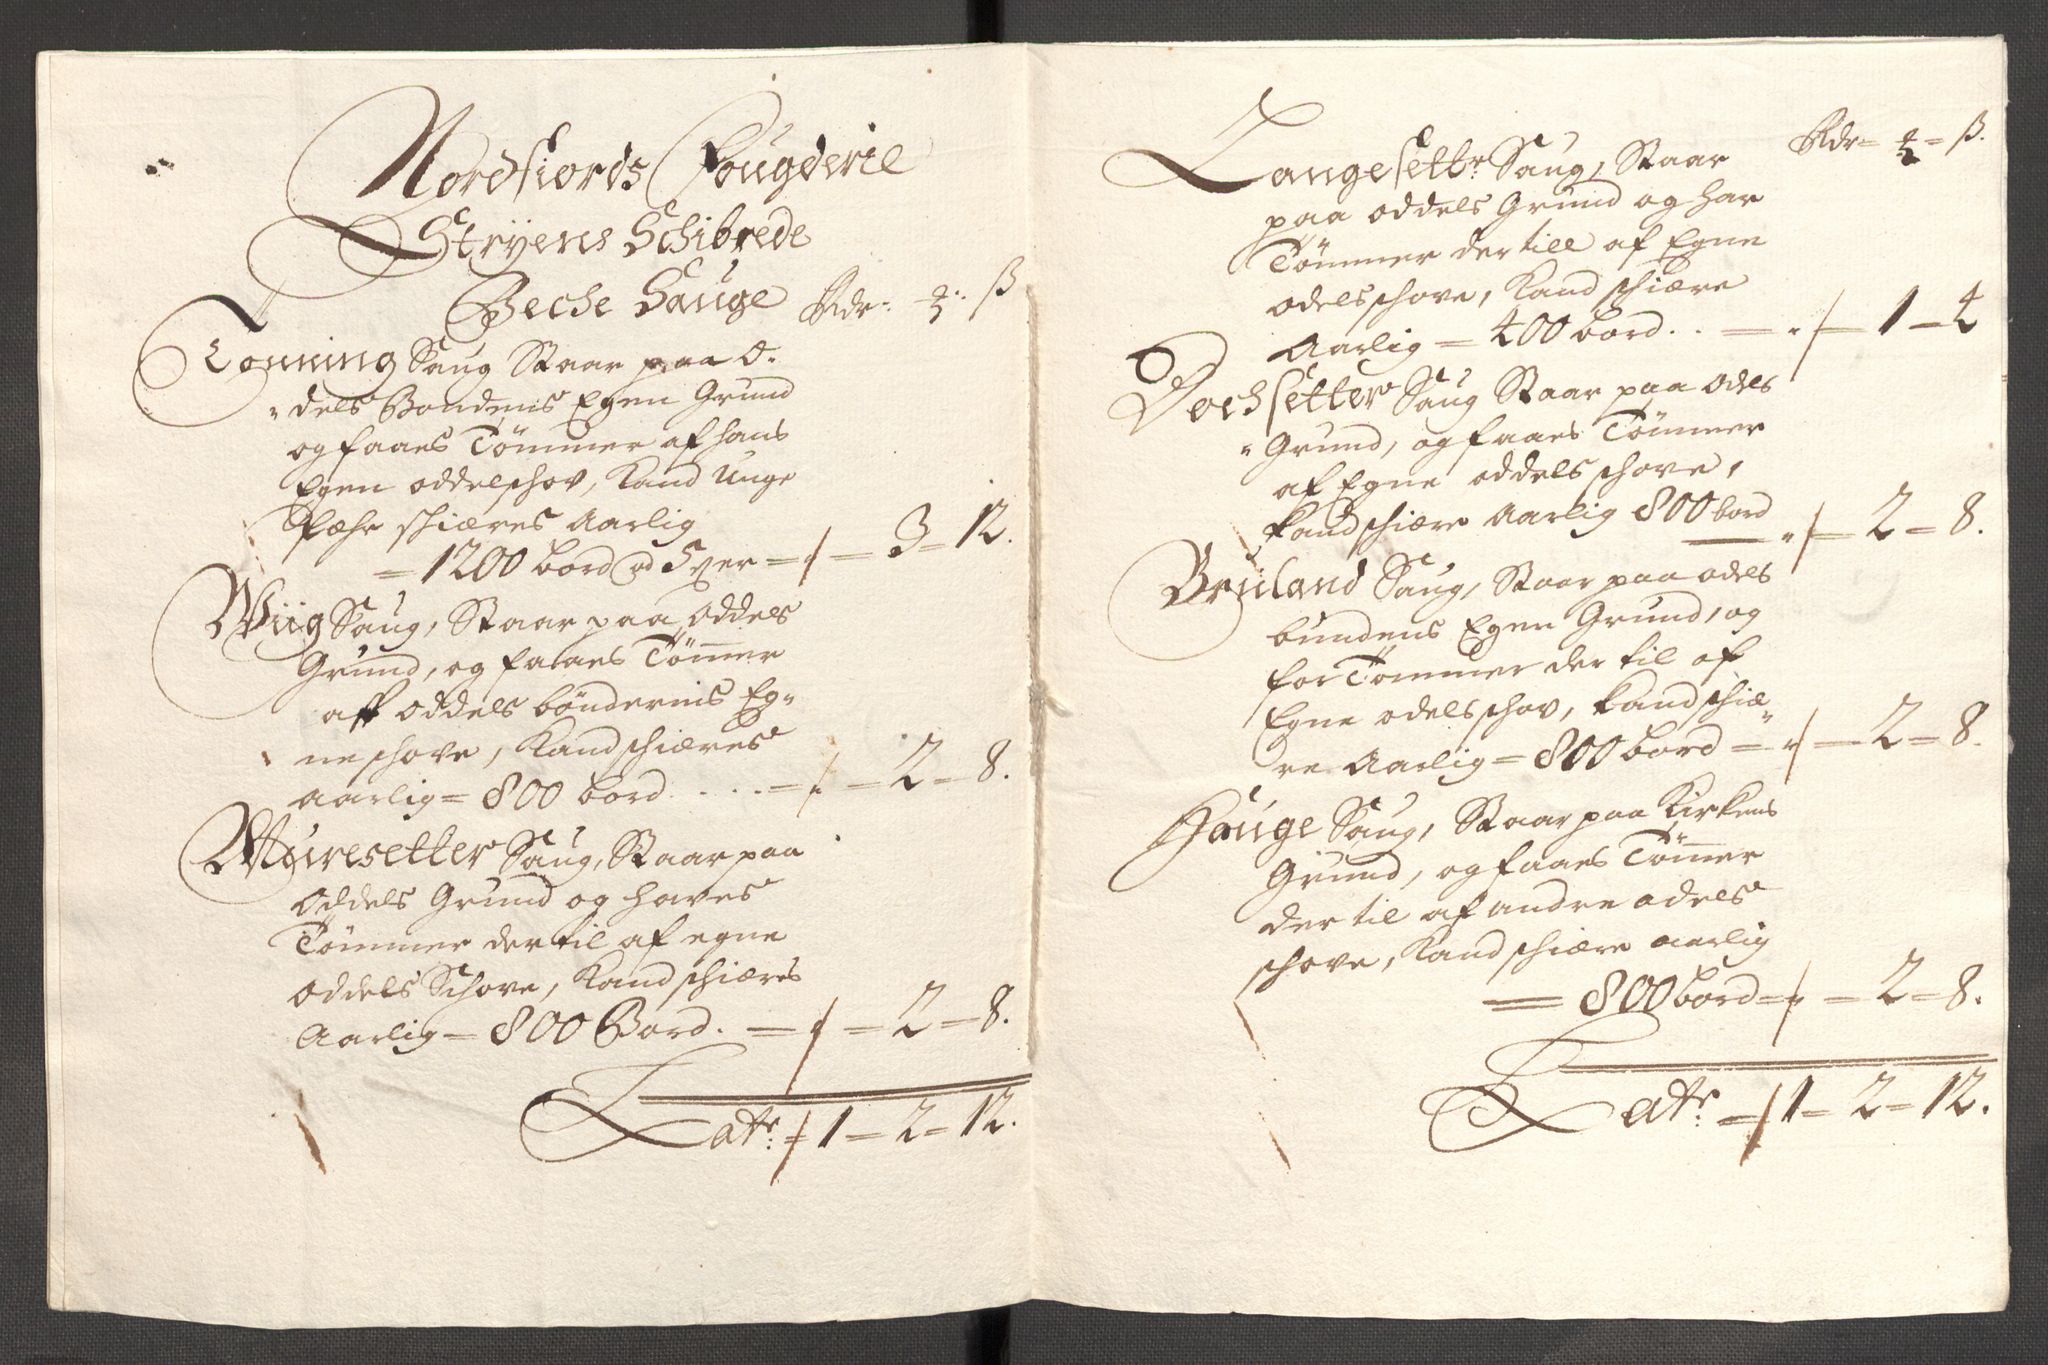 Nordfiords Fougderie
Stryens Schibrede
Beche Sauge Rdr: ß
Tonning Saug Staar paa O-
dels Bondens Egen Grund
og faaes Tømmer af hans
Egen oddelschov, Kand Unge
fæhr schiæres Aarlig
= 1200 bord = 3 = 12.
Wiig Saug, Staar paa Oddels
Grund, og faaes Tømer
aff Oddels bøndernis Eg-
ne schove, Kand schiæres
aarlig = 800 bord .... = 2 = 8.
Muresetter Saug, Staar paa
Oddels Grund og haves
Tømmer der til af egne
Oddels Schove, Kand schiæres
Aarlig = 800 Bord. = 2 = 8.
Latr: = 1 = 2 = 12.
Langesettr Saug, Staar Rdr = ß.
paa oddels Grund og har
Tømmer der till af Egne
odels schove, Kand schiære
Aarlig = 400 bord .. = 1 = 4
Dochsetter Saug Staar paa Odels
Grund, og faaes Tømmer
af Egne oddels schove,
kand schiære Aarlig 800 bord
= 2 = 8.
Bruland Saug, Staar paa odels
bundens Egen Grund, og
for Tømmer der til af
Egne odels schov, kand schiæ-
re Aarlig = 800 bord = 2 = 8.
Hauge Saug, Staar paa Kirkens
Grund, og faaes Tømer
der til af andre odels
schove, Kand schiære aarlig
= 800 bord = 2 = 8.
Latr: = 1 = 2 = 12.